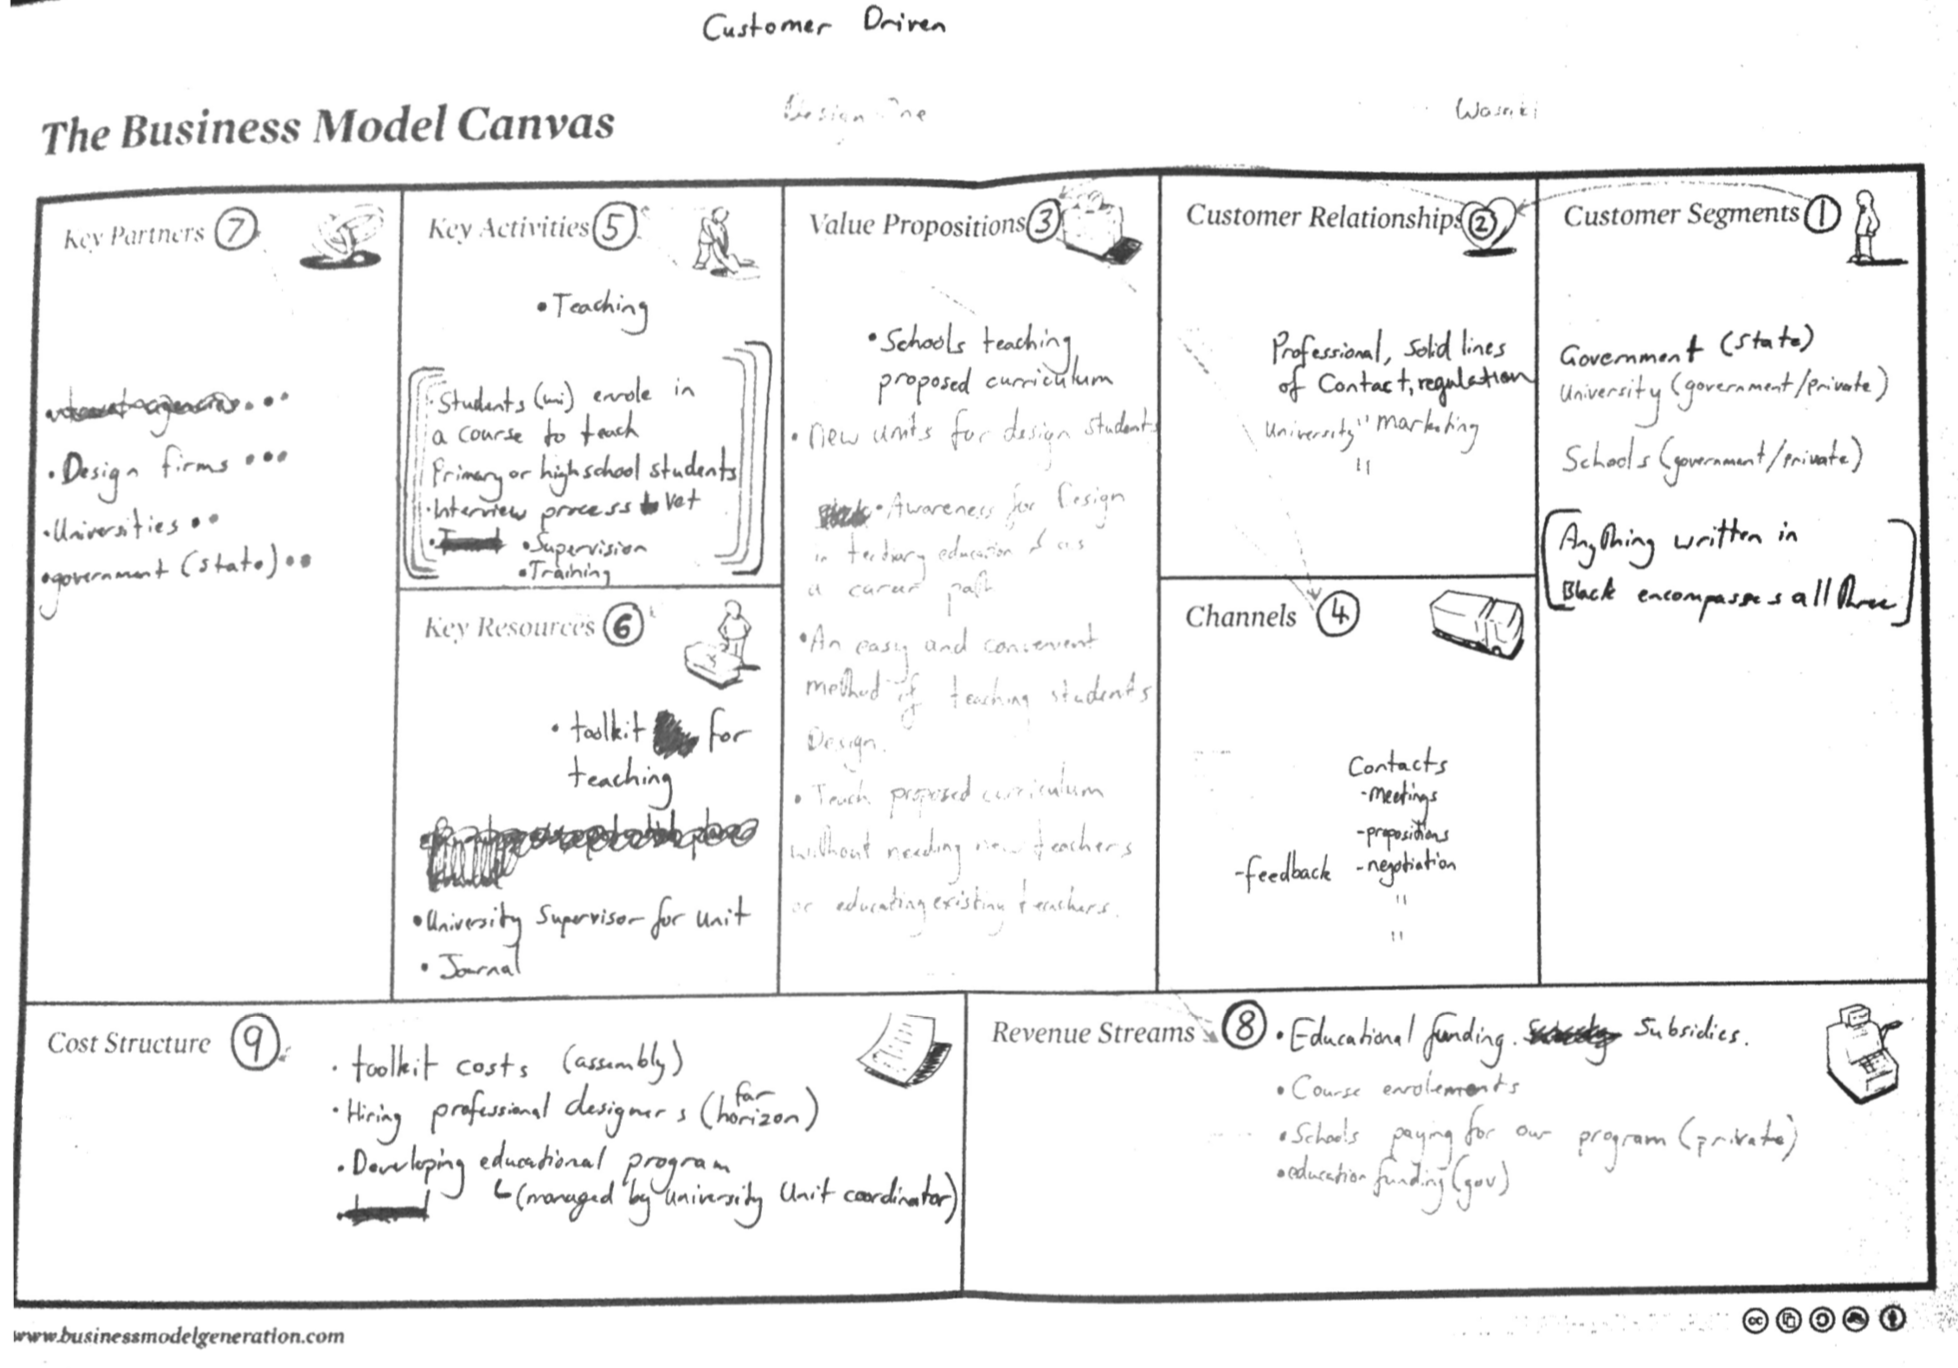 Customer Driven
The Business Model Canvas
Design One
Key Partners 7
• Design firms •••
• Universities ••
• government (state) ••
Key Activities 5
• Teaching
• Students (uni) enrole in
a course to teach
Primary or high school students
• Interview process to vet
• Supervision
• Training
Key Resources 6
• toolkit for
teaching
• University Supervisor for unit
• Journal
Value Propositions 3
• Schools teaching
proposed curriculum
• New units for design students
• Awareness for Design
in tertiary education & as
a career path
• An easy and convenient
method of teaching students
Design.
• Teach proposed curriculum
without needing new teachers
or educating existing teachers.
Customer Relationships 2
Professional, Solid lines
of Contact, regulation
University " marketing
"
Channels 4
Contacts
- meetings
- propositions
- feedback - negotiation
"
"
Customer Segments 1
Government (state)
University (government/private)
Schools (government/private)
[Anything written in
Black encompasses all three]
Cost Structure 9
• toolkit costs (assembly)
• Hiring professional designers (far horizon)
• Developing educational program
(managed by University Unit coordinator)
Revenue Streams 8
• Educational funding. Subsidies.
• Course enrolements
• Schools paying for our program (private)
• education funding (gov)
www.businessmodelgeneration.com
cc